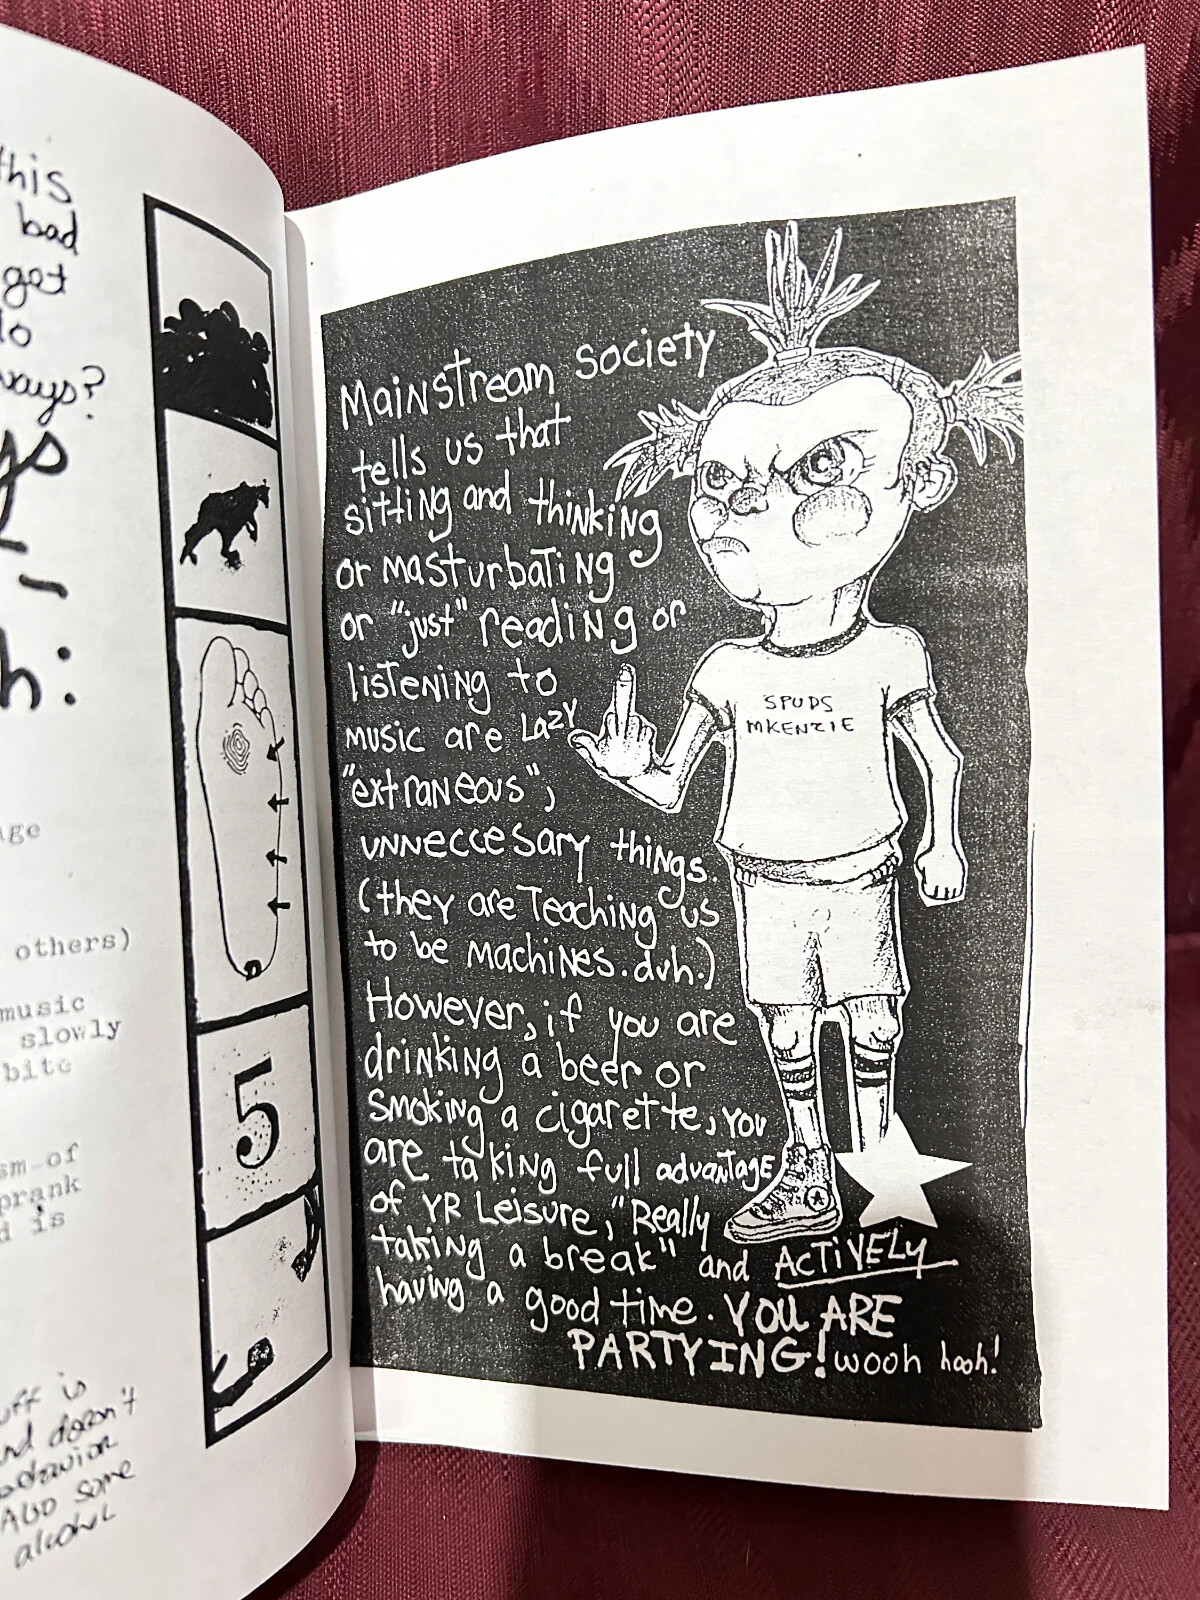 this
bad
get
ways?
h:
age
others)
music
slowly
bite
of
prank
is
is
doesn't
behavior
Also some
alcohol
5
Mainstream society
tells us that
sitting and thinking
or masturbating
or "just" reading or
listening to
music are Lazy
"extraneous",
unneccesary things.
(they are Teaching us
to be machines. duh.)
However, if you are
drinking a beer or
smoking a cigarette, you
are taking full advantage
of YR Leisure, "Really
taking a break" and ACTIVELY
having a good time. YOU ARE
PARTYING! wooh hooh!
SPUDS
MKENZIE
A